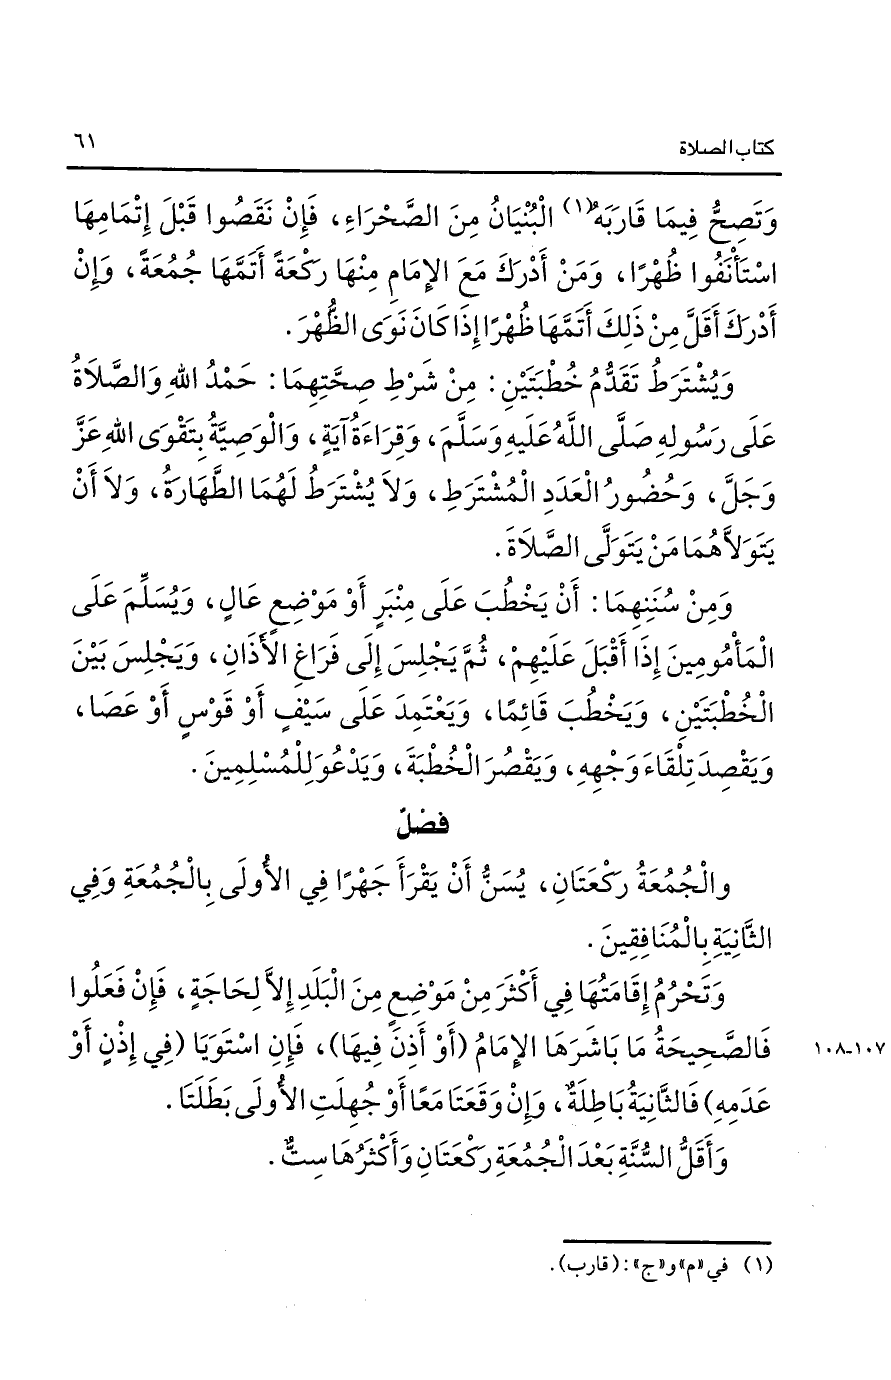 كتاب الصلاة ٦١
وَتَصِحُّ فِيمَا قَارَبَهُ(١) الْبُنْيَانُ مِنَ الصَّحْرَاءِ، فَإِنْ نَقَصُوا قَبْلَ إِتْمَامِهَا
اسْتَأْنَفُوا ظُهْرًا، وَمَنْ أَدْرَكَ مَعَ الإِمَامِ مِنْهَا رَكْعَةً أَتَمَّهَا جُمُعَةً، وَإِنْ
أَدْرَكَ أَقَلَّ مِنْ ذلِكَ أَتَمَّهَا ظُهْرًا إِذَا كَانَ نَوَى الظُّهْرَ.
وَيُشْتَرَطُ تَقَدُّمُ خُطْبَتَيْنِ: مِنْ شَرْطِ صِحَّتِهِمَا: حَمْدُ اللهِ وَالصَّلَاةُ
عَلَى رَسُولِهِ صَلَّى اللَّهُ عَلَيهِ وَسَلَّمَ، وَقِرَاءَةُ آيَةٍ، وَالْوَصِيَّةُ بِتَقْوَى اللهِ عَزَّ
وَجَلَّ، وَحُضُورُ الْعَدَدِ الْمُشْتَرَطِ، وَلَا يُشْتَرَطُ لَهُمَا الطَّهَارَةُ، وَلَا أَنْ
يَتَوَلَّاهُمَا مَنْ يَتَوَلَّى الصَّلَاةَ.
وَمِنْ سُنَنِهِمَا: أَنْ يَخْطُبَ عَلَى مِنْبَرٍ أَوْ مَوْضِعٍ عَالٍ، وَيُسَلِّمَ عَلَى
الْمَأْمُومِينَ إِذَا أَقْبَلَ عَلَيْهِمْ، ثُمَّ يَجْلِسَ إِلَى فَرَاغِ الأَذَانِ، وَيَجْلِسَ بَيْنَ
الْخُطْبَتَيْنِ، وَيَخْطُبَ قَائِمًا، وَيَعْتَمِدَ عَلَى سَيْفٍ أَوْ قَوْسٍ أَوْ عَصَا،
وَيَقْصِدَ تِلْقَاءَ وَجْهِهِ، وَيَقْصُرَ الْخُطْبَةَ، وَيَدْعُوَ لِلْمُسْلِمِينَ.
فصْلٌ
والْجُمُعَةُ رَكْعَتَانِ، يُسَنُّ أَنْ يَقْرَأَ جَهْرًا فِي الأُولَى بِالْجُمُعَةِ وَفِي
الثَّانِيَةِ بِالْمُنَافِقِينَ.
وَتَحْرُمُ إِقَامَتُهَا فِي أَكْثَرَ مِنْ مَوْضِعٍ مِنَ الْبَلَدِ إِلاَّ لِحَاجَةٍ، فَإِنْ فَعَلُوا
فَالصَّحِيحَةُ مَا بَاشَرَهَا الإِمَامُ (أَوْ أَذِنَ فِيهَا)، فَإِنِ اسْتَوَيَا (فِي إِذْنٍ أَوْ ١٠٧-١٠٨
عَدَمِهِ) فَالثَّانِيَةُ بَاطِلَةٌ، وَإِنْ وَقَعَتَا مَعًا أَوْ جُهِلَتِ الأُولَى بَطَلَتَا.
وَأَقَلُّ السُّنَّةِ بَعْدَ الْجُمُعَةِ رَكْعَتَانِ وَأَكْثَرُهَا سِتٌّ.
(١) في «م» و«ج»: (قارب).